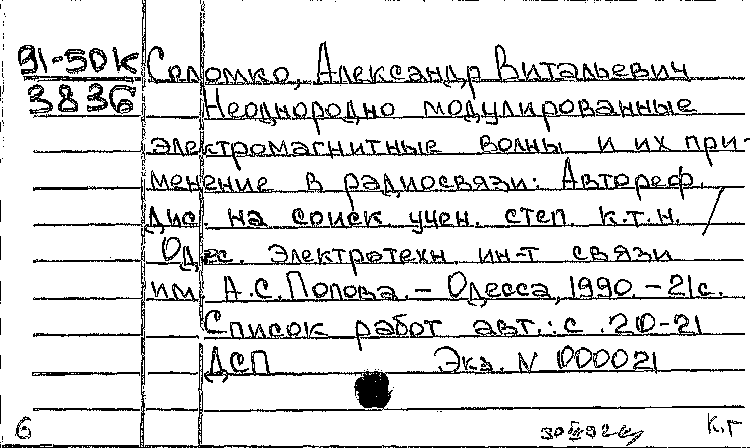 91-50к Соломко, Александр Витальевич
3836 Неоднородно модулированные
электромагнитные волны и их при-
менение в радиосвязи: Автореф.
дис. на соиск. учен. степ. к.т.н. /
Одес. электротехн. ин-т связи
им. А.С. Попова. – Одесса, 1990. – 21с.
Список работ авт.: с. 20-21
ДСП Экз. N 000021
6 К.Г